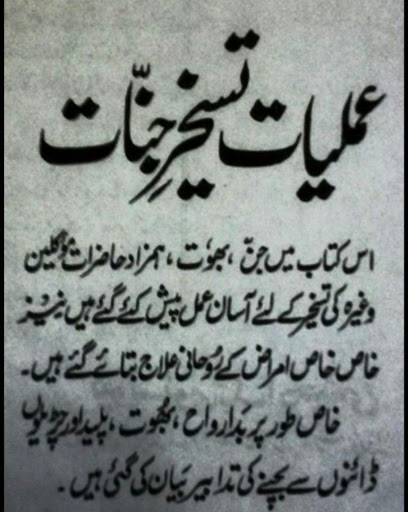 عملیات تسخیرِ جنّات
اس کتاب میں جنّ، بھوت، ہمزاد حاضرات مؤکلین
وغیرہ کی تسخیر کے لئے آسان عمل پیش کئے گئے ہیں نیز
خاص خاص امراض کے رُوحانی علاج بتائے گئے ہیں۔
خاص طور پر بَدارواح، بھُوت، پلید اور چڑیلوں
ڈائنوں سے بچنے کی تدابیر بیان کی گئی ہیں۔